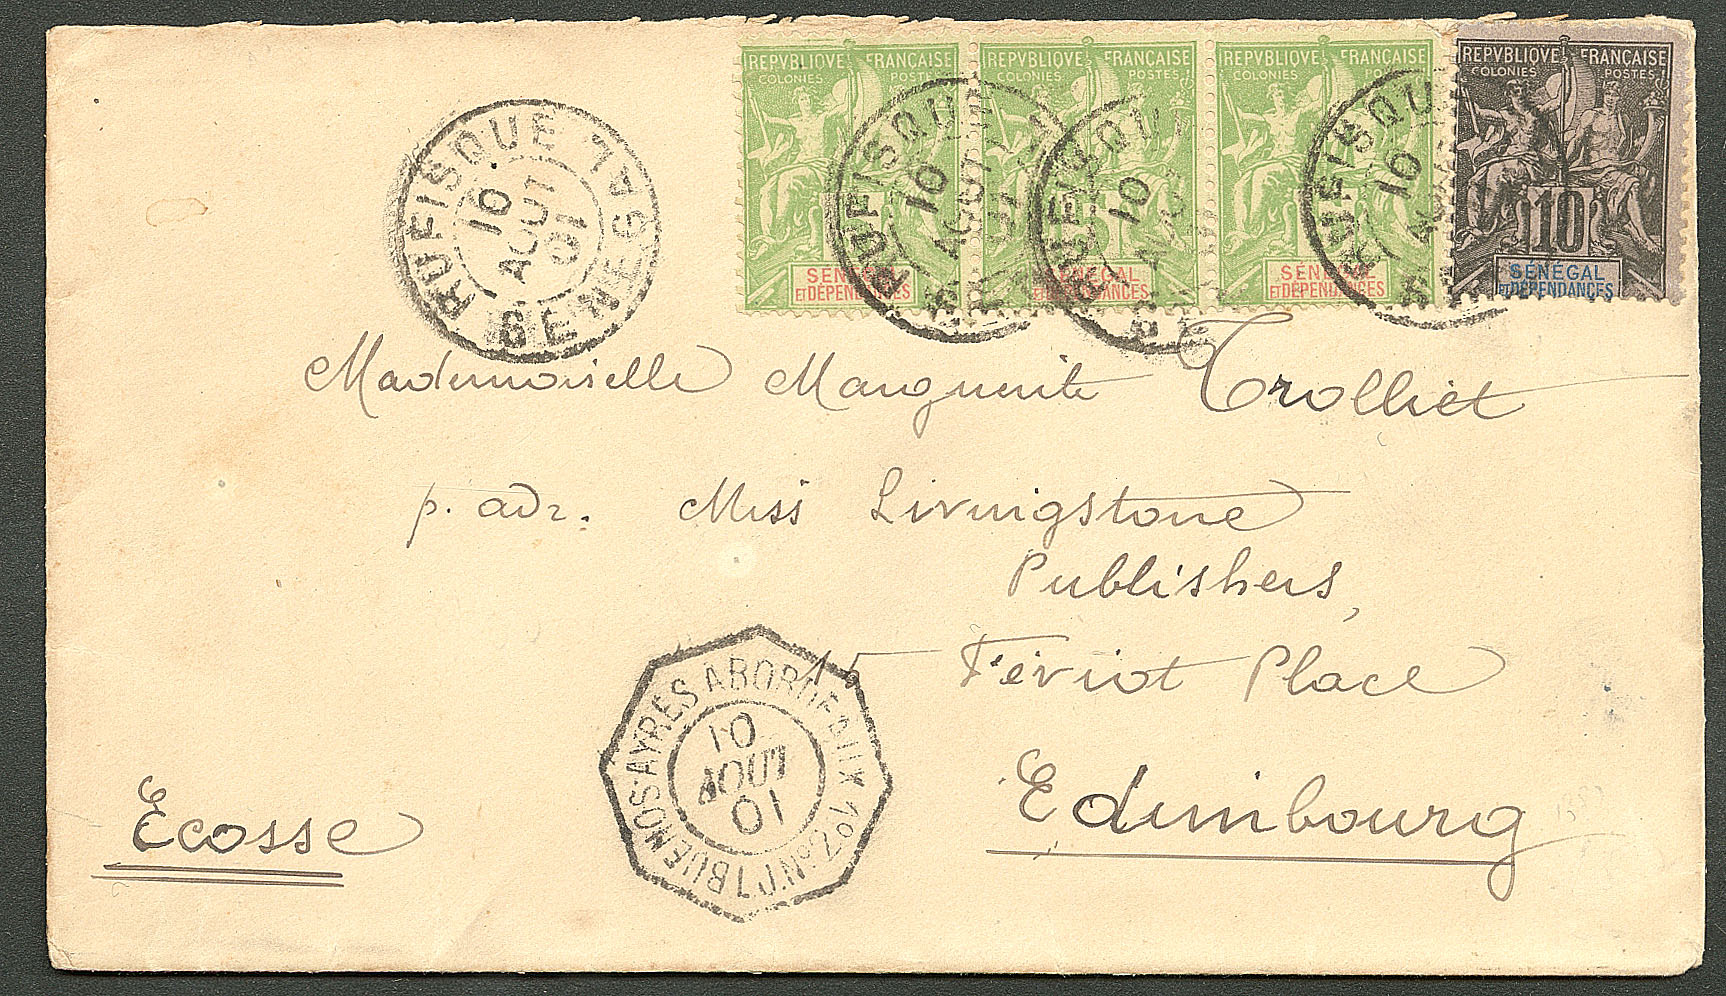 REPVBLIQVE FRANÇAISE
COLONIES POSTES
SENEGAL
ET DÉPENDANCES
REPVBLIQVE FRANÇAISE
COLONIES POSTES
SENEGAL
ET DÉPENDANCES
REPVBLIQVE FRANÇAISE
COLONIES
SENEGAL
ET DÉPENDANCES
REPVBLIQVE FRANÇAISE
COLONIES POSTES
10
SÉNÉGAL
ET DÉPENDANCES
RUFISQUE
10
AOUT
01
SENEGAL
RUFISQUE
10
AOUT
01
RUFISQUE
10
RUFISQUE
10
Mademoiselle Marguerite Trolliet
p. adr. Miss Livingstone
Publishers,
15 Teviot Place
Edimbourg
Ecosse
BUENOS-AYRES A BORDEAUX 1º
L.J.Nº2
10
AOUT
01